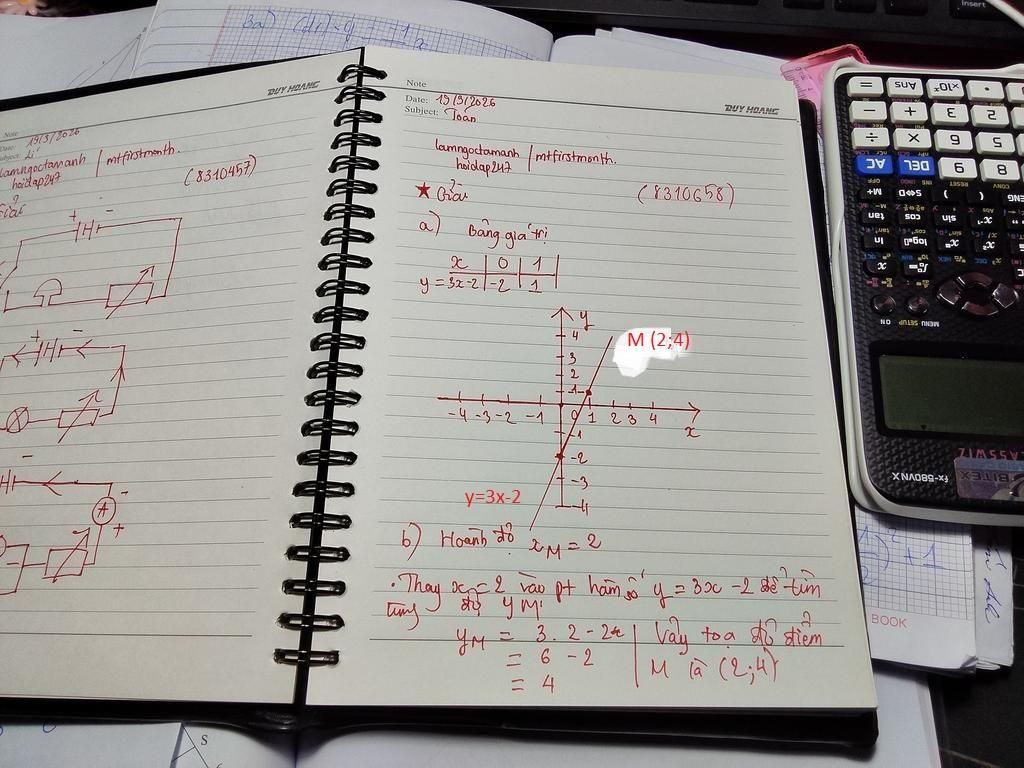 3a)
DUY HOANG
Note
Date: 19/3/2026
Subject: Lí
lamngoctamanh
hoidap247 | mtfirstmonth.
(8310457)
Giải
+ -
+ -
-
A
+
Note
DUY HOANG
Date: 19/3/2026
Subject: Toán
lamngoctamanh
hoidap247 | mtfirstmonth.
★ Giải (8310658)
a) Bảng giá trị
x | 0 | 1
y = 3x-2 | -2 | 1
y
4
3
2
1
M (2;4)
-4 -3 -2 -1 0 1 2 3 4
x
-1
-2
-3
-4
y=3x-2
b) Hoành độ x_M = 2
. Thay x = 2 vào pt hàm số y = 3x - 2 để tìm
tung độ y M:
y_M = 3.2 - 2
= 6 - 2
= 4
Vậy toạ độ điểm
M là (2;4)
Insert
= Ans ×10ˣ •
- + 3 2
÷ × 6 5
AC DEL 9 8
M+ S⇔D
tan cos sin
ln
MENU SETUP ON
CLASSWIZ
fx-580VN X
BITEX
+ 1
BOOK
S